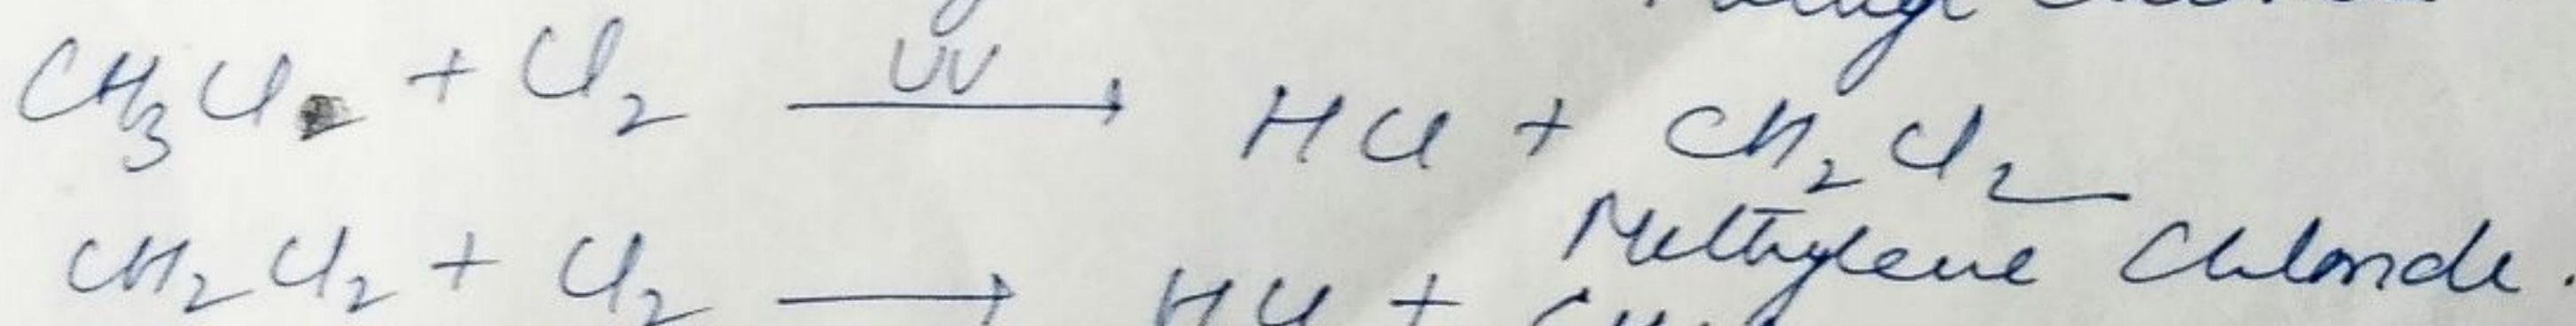 CH₃Cl + Cl₂ —UV→ HCl + CH₂Cl₂
Methylene Chloride.
CH₂Cl₂ + Cl₂ → HCl +